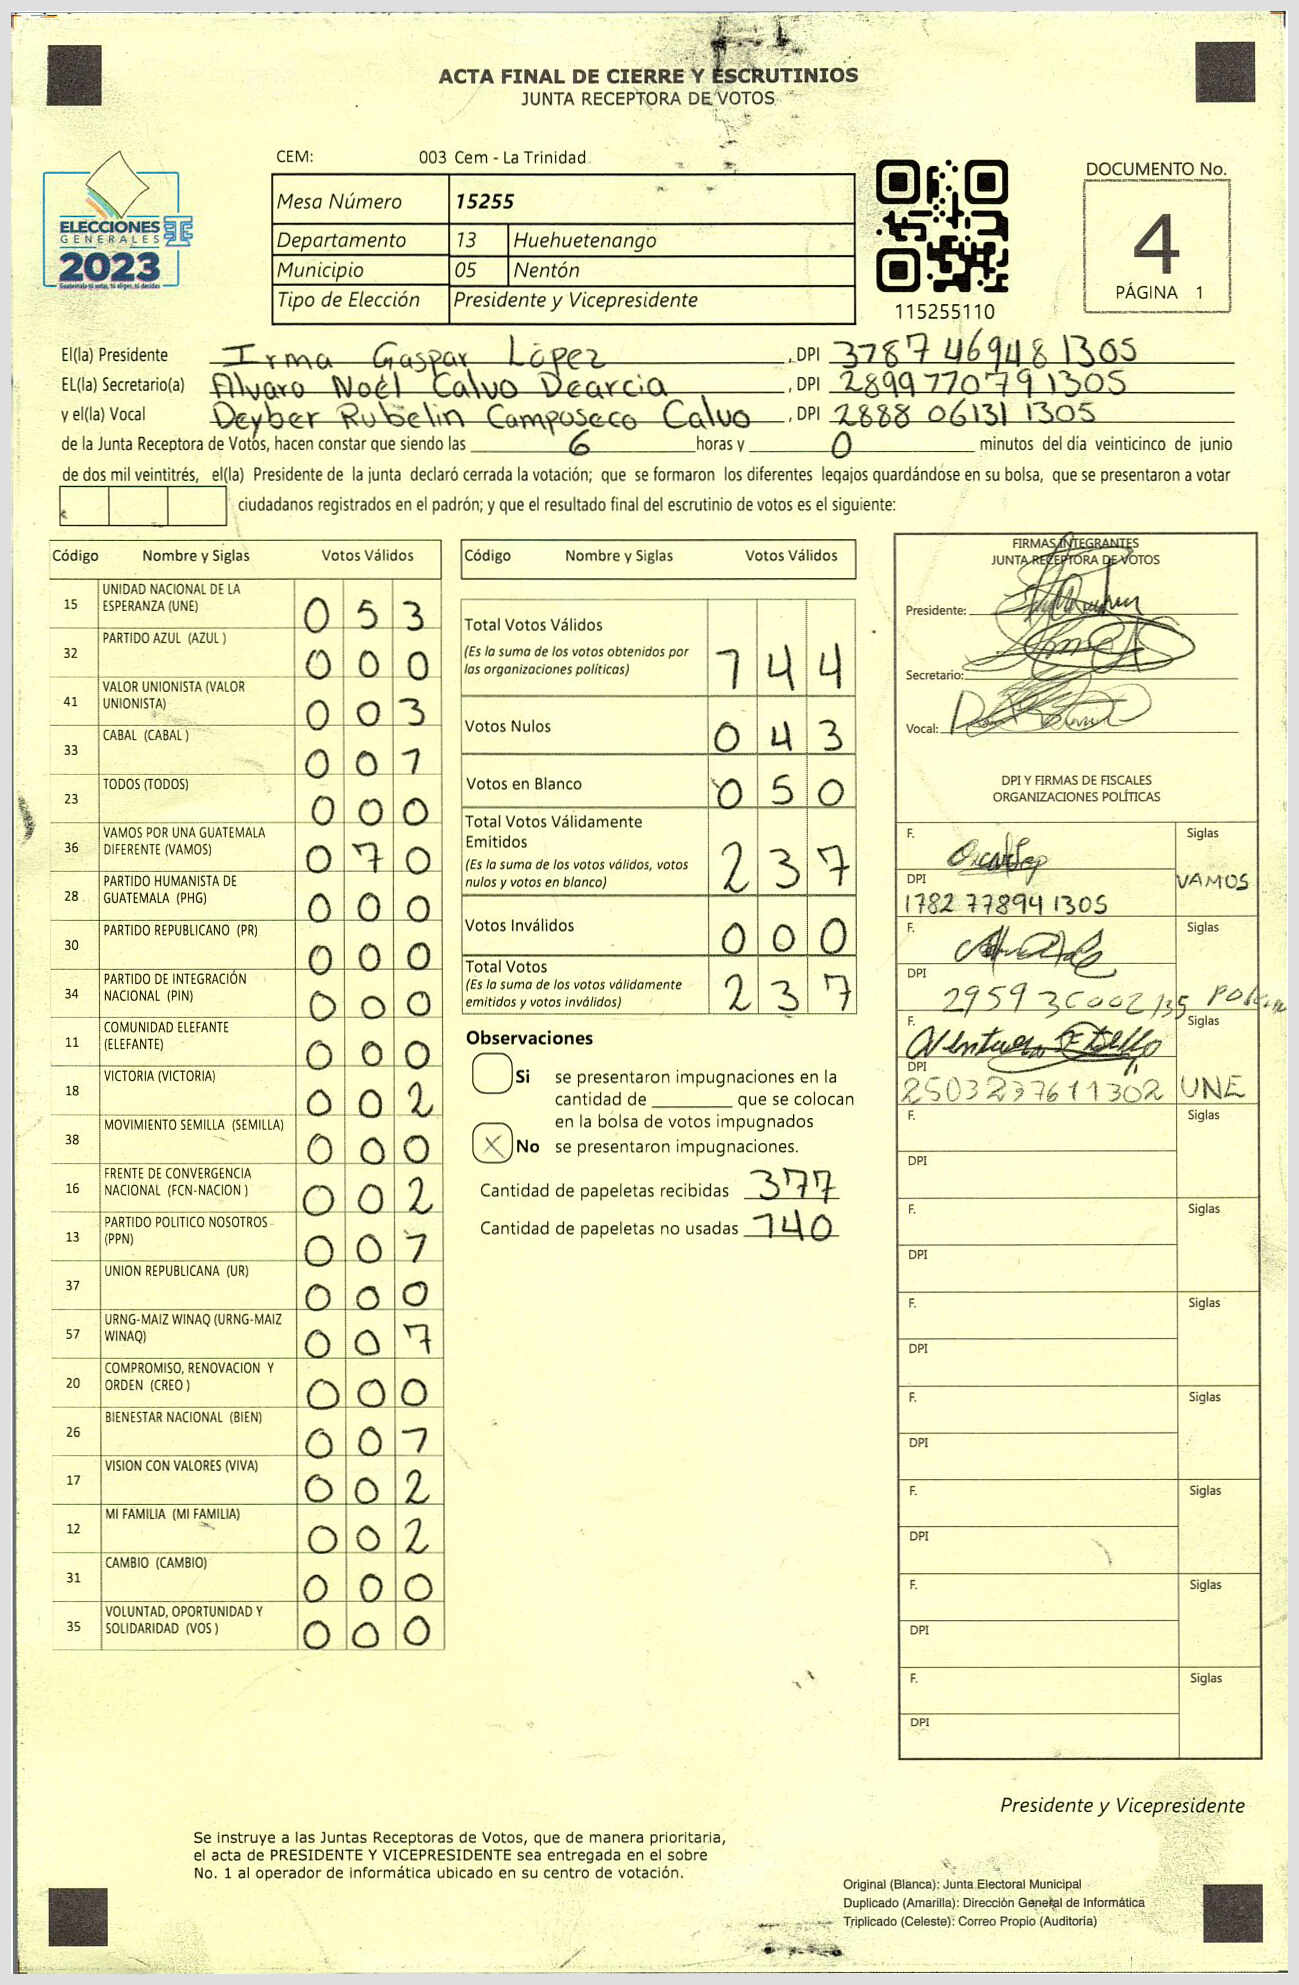 ACTA FINAL DE CIERRE Y ESCRUTINIOS
JUNTA RECEPTORA DE VOTOS
CEM: 003 Cem - La Trinidad
ELECCIONES
GENERALES
2023
Guatemala tú votas, tú eliges, tú decides
Mesa Número 15255
Departamento 13 Huehuetenango
Municipio 05 Nentón
Tipo de Elección Presidente y Vicepresidente
115255110
DOCUMENTO No.
4
PÁGINA 1
El(la) Presidente Irma Gaspar López , DPI 3787 46948 1305
EL(la) Secretario(a) Alvaro Noél Calvo Dearcia , DPI 2899 77079 1305
y el(la) Vocal Deyber Rubelin Camposeco Calvo , DPI 2888 06131 1305
de la Junta Receptora de Votos, hacen constar que siendo las 6 horas y 0 minutos del día veinticinco de junio
de dos mil veintitrés, el(la) Presidente de la junta declaró cerrada la votación; que se formaron los diferentes legajos guardándose en su bolsa, que se presentaron a votar
ciudadanos registrados en el padrón; y que el resultado final del escrutinio de votos es el siguiente:
Código Nombre y Siglas Votos Válidos
15 UNIDAD NACIONAL DE LA
ESPERANZA (UNE) 0 5 3
32 PARTIDO AZUL (AZUL ) 0 0 0
41 VALOR UNIONISTA (VALOR
UNIONISTA) 0 0 3
33 CABAL (CABAL ) 0 0 1
23 TODOS (TODOS) 0 0 0
36 VAMOS POR UNA GUATEMALA
DIFERENTE (VAMOS) 0 7 0
28 PARTIDO HUMANISTA DE
GUATEMALA (PHG) 0 0 0
30 PARTIDO REPUBLICANO (PR) 0 0 0
34 PARTIDO DE INTEGRACIÓN
NACIONAL (PIN) 0 0 0
11 COMUNIDAD ELEFANTE
(ELEFANTE) 0 0 0
18 VICTORIA (VICTORIA) 0 0 2
38 MOVIMIENTO SEMILLA (SEMILLA) 0 0 0
16 FRENTE DE CONVERGENCIA
NACIONAL (FCN-NACION ) 0 0 2
13 PARTIDO POLITICO NOSOTROS
(PPN) 0 0 1
37 UNION REPUBLICANA (UR) 0 0 0
57 URNG-MAIZ WINAQ (URNG-MAIZ
WINAQ) 0 0 7
20 COMPROMISO, RENOVACION Y
ORDEN (CREO ) 0 0 0
26 BIENESTAR NACIONAL (BIEN) 0 0 1
17 VISION CON VALORES (VIVA) 0 0 2
12 MI FAMILIA (MI FAMILIA) 0 0 2
31 CAMBIO (CAMBIO) 0 0 0
35 VOLUNTAD, OPORTUNIDAD Y
SOLIDARIDAD (VOS ) 0 0 0
Código Nombre y Siglas Votos Válidos
Total Votos Válidos
(Es la suma de los votos obtenidos por
las organizaciones políticas) 1 4 4
Votos Nulos 0 4 3
Votos en Blanco 0 5 0
Total Votos Válidamente
Emitidos
(Es la suma de los votos válidos, votos
nulos y votos en blanco) 2 3 7
Votos Inválidos 0 0 0
Total Votos
(Es la suma de los votos válidamente
emitidos y votos inválidos) 2 3 7
Observaciones
Si se presentaron impugnaciones en la
cantidad de ________ que se colocan
en la bolsa de votos impugnados
X No se presentaron impugnaciones.
Cantidad de papeletas recibidas 377
Cantidad de papeletas no usadas 140
FIRMAS INTEGRANTES
JUNTA RECEPTORA DE VOTOS
Presidente:
Secretario:
Vocal:
DPI Y FIRMAS DE FISCALES
ORGANIZACIONES POLÍTICAS
F. Siglas
DPI VAMOS
1782 77894 1305
F. Siglas
DPI
F. Siglas
DPI
2503237611302 UNE
F. Siglas
DPI
F. Siglas
DPI
F. Siglas
DPI
F. Siglas
DPI
F. Siglas
DPI
F. Siglas
DPI
F. Siglas
DPI
Presidente y Vicepresidente
Se instruye a las Juntas Receptoras de Votos, que de manera prioritaria,
el acta de PRESIDENTE Y VICEPRESIDENTE sea entregada en el sobre
No. 1 al operador de informática ubicado en su centro de votación.
Original (Blanca): Junta Electoral Municipal
Duplicado (Amarilla): Dirección General de Informática
Triplicado (Celeste): Correo Propio (Auditoría)